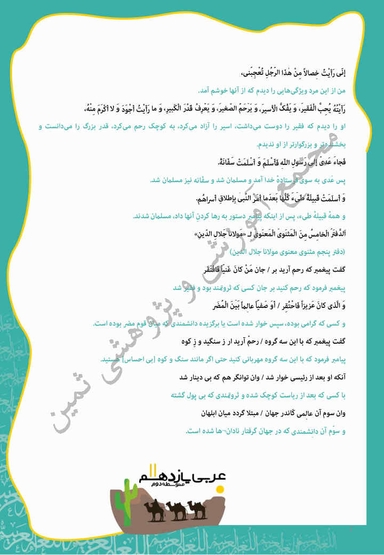 إنّي رَأَيْتُ خِصالاً مِنْ هٰذَا الرَّجُلِ تُعْجِبُني،
من از این مرد ویژگی‌هایی را دیدم که از آنها خوشم آمد.
رَأَيْتُهُ يُحِبُّ الْفَقيرَ، وَ يَفُكُّ الْأَسيرَ، وَ يَرْحَمُ الصَّغيرَ، وَ يَعْرِفُ قَدْرَ الْكَبيرِ، وَ ما رَأَيْتُ أَجْوَدَ وَ لا أَكْرَمَ مِنْهُ،
او را دیدم که فقیر را دوست می‌داشت، اسیر را آزاد می‌کرد، به کوچک رحم می‌کرد، قدر بزرگ را می‌دانست و
بخشنده‌تر و بزرگوارتر از او ندیدم.
فَجاءَ عَديٌّ إلى رَسولِ اللهِ فَأَسْلَمَ وَ أَسْلَمَتْ سَفّانَةُ،
پس عَدی به سوی فرستادهٔ خدا آمد و مسلمان شد و سفّانه نیز مسلمان شد.
وَ أَسْلَمَتْ قَبيلَةُ طَيِّءٍ كُلُّها بَعدَما أَمَرَ النَّبي بِإطلاقِ أَسراهُم.
و همهٔ قبیلهٔ طیء، پس از اینکه پیامبر دستور به رها کردنِ آنها داد، مسلمان شدند.
اَلدَّفتَرُ الْخامِسُ مِنَ الْمَثنَويِّ الْمَعنَويِّ لـِ «مَولانا جَلالِ الدّينِ»
(دفتر پنجم مثنوی معنوی مولانا جلال الدّین)
گفت پیغمبر که رحم آرید بر / جان مَنْ كانَ غَنيّاً فَافْتَقَر
پیغمبر فرمود که رحم کنید بر جان کسی که ثروتمند بود و فقیر شد
وَ الَّذي كانَ عَزيزاً فَاحْتُقِر / أَوْ صَفيّاً عالِماً بَيْنَ الْمُضَر
و کسی که گرامی بوده، سپس خوار شده است یا برگزیده دانشمندی که میان قوم مضر بوده است.
گفت پیغمبر که با این سه گروه / رحمْ آرید ار ز سنگید و زِ کوه
پیامبر فرمود که با این سه گروه مهربانی کنید حتی اگر مانند سنگ و کوه (بی احساس) هستید.
آنکه او بعد از رئیسی خوار شد / وان توانگر هم که بی دینار شد
با کسی که بعد از ریاست کوچک شده و ثروتمندی که بی پول گشته
وان سوم آن عالِمی کاندر جهان / مبتلا گردد میان ابلهان
و سوّم آن دانشمندی که در جهان گرفتار نادان‌ها شده است.
مجتمع آموزشی و پژوهشی ثمین
عربی یازدهم
متوسطه دوم